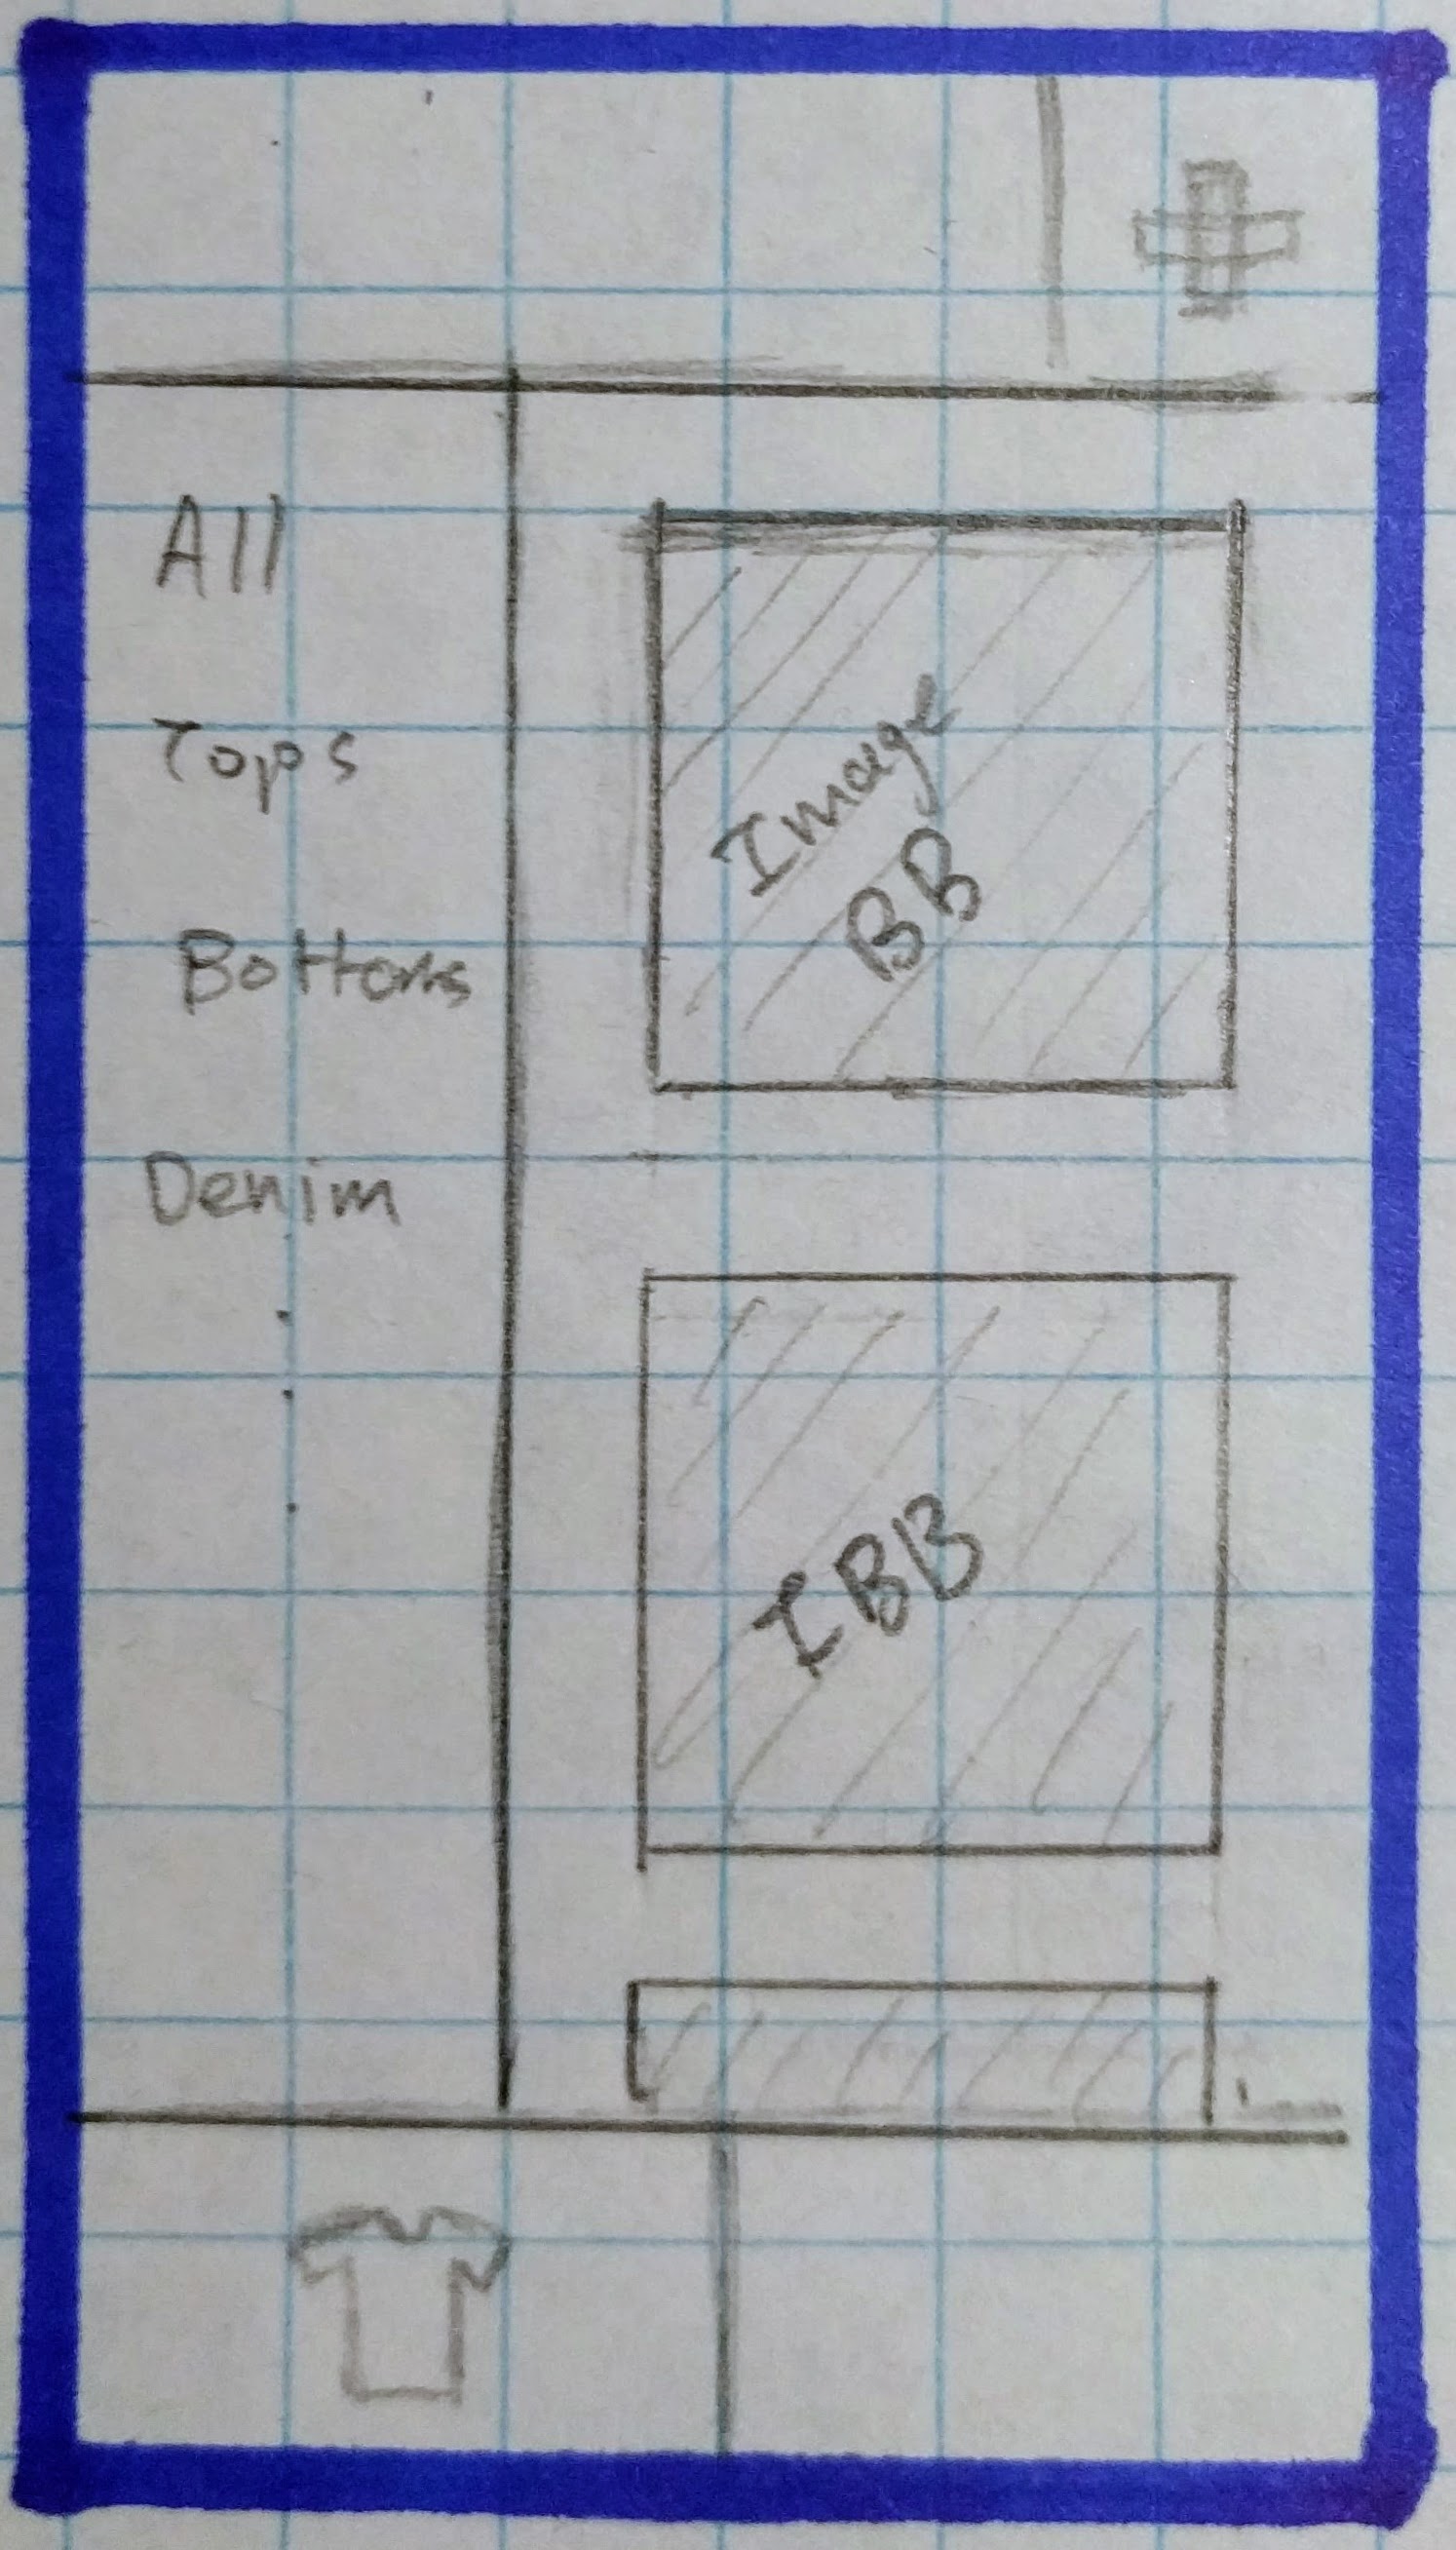 All
Tops
Bottoms
Denim
Image
BB
IBB